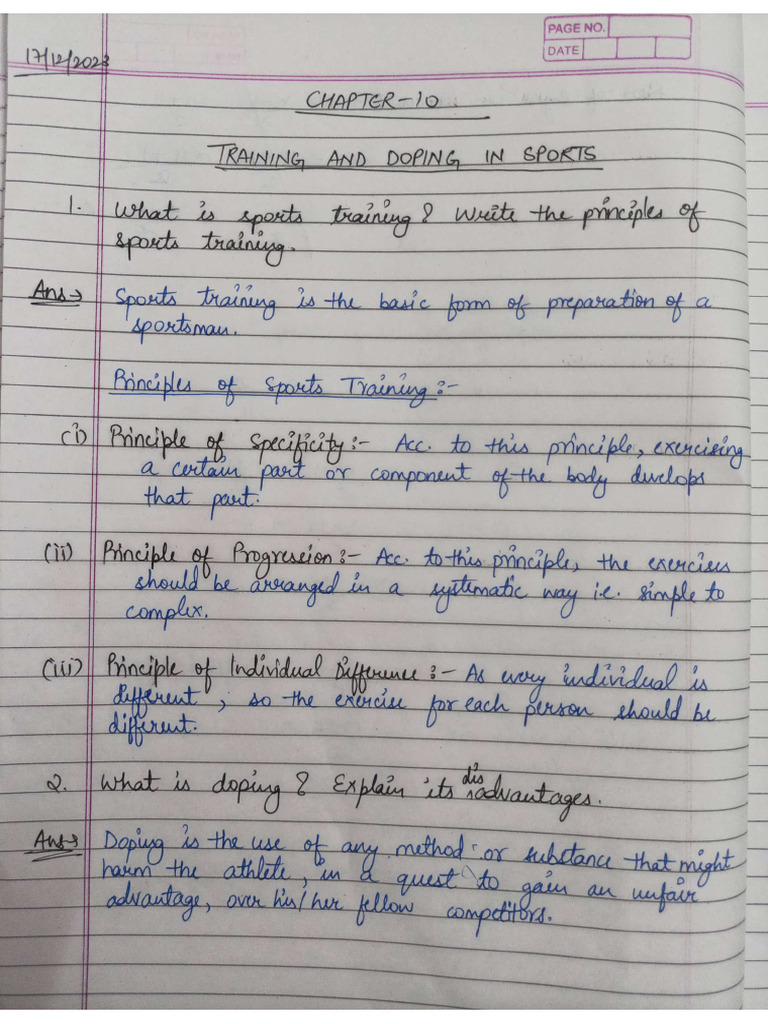 PAGE NO.
DATE
17/12/2023
CHAPTER-10
TRAINING AND DOPING IN SPORTS
1. What is sports training? Write the principles of
sports training.
Ans→ Sports training is the basic form of preparation of a
sportsman.
Principles of Sports Training:-
(i) Principle of Specificity:- Acc. to this principle, exercising
a certain part or component of the body develops
that part.
(ii) Principle of Progression:- Acc. to this principle, the exercises
should be arranged in a systematic way i.e. simple to
complex.
(iii) Principle of Individual Difference:- As every individual is
different, so the exercise for each person should be
different.
2. What is doping? Explain its disadvantages.
Ans→ Doping is the use of any method or substance that might
harm the athlete, in a quest to gain an unfair
advantage, over his/her fellow competitors.